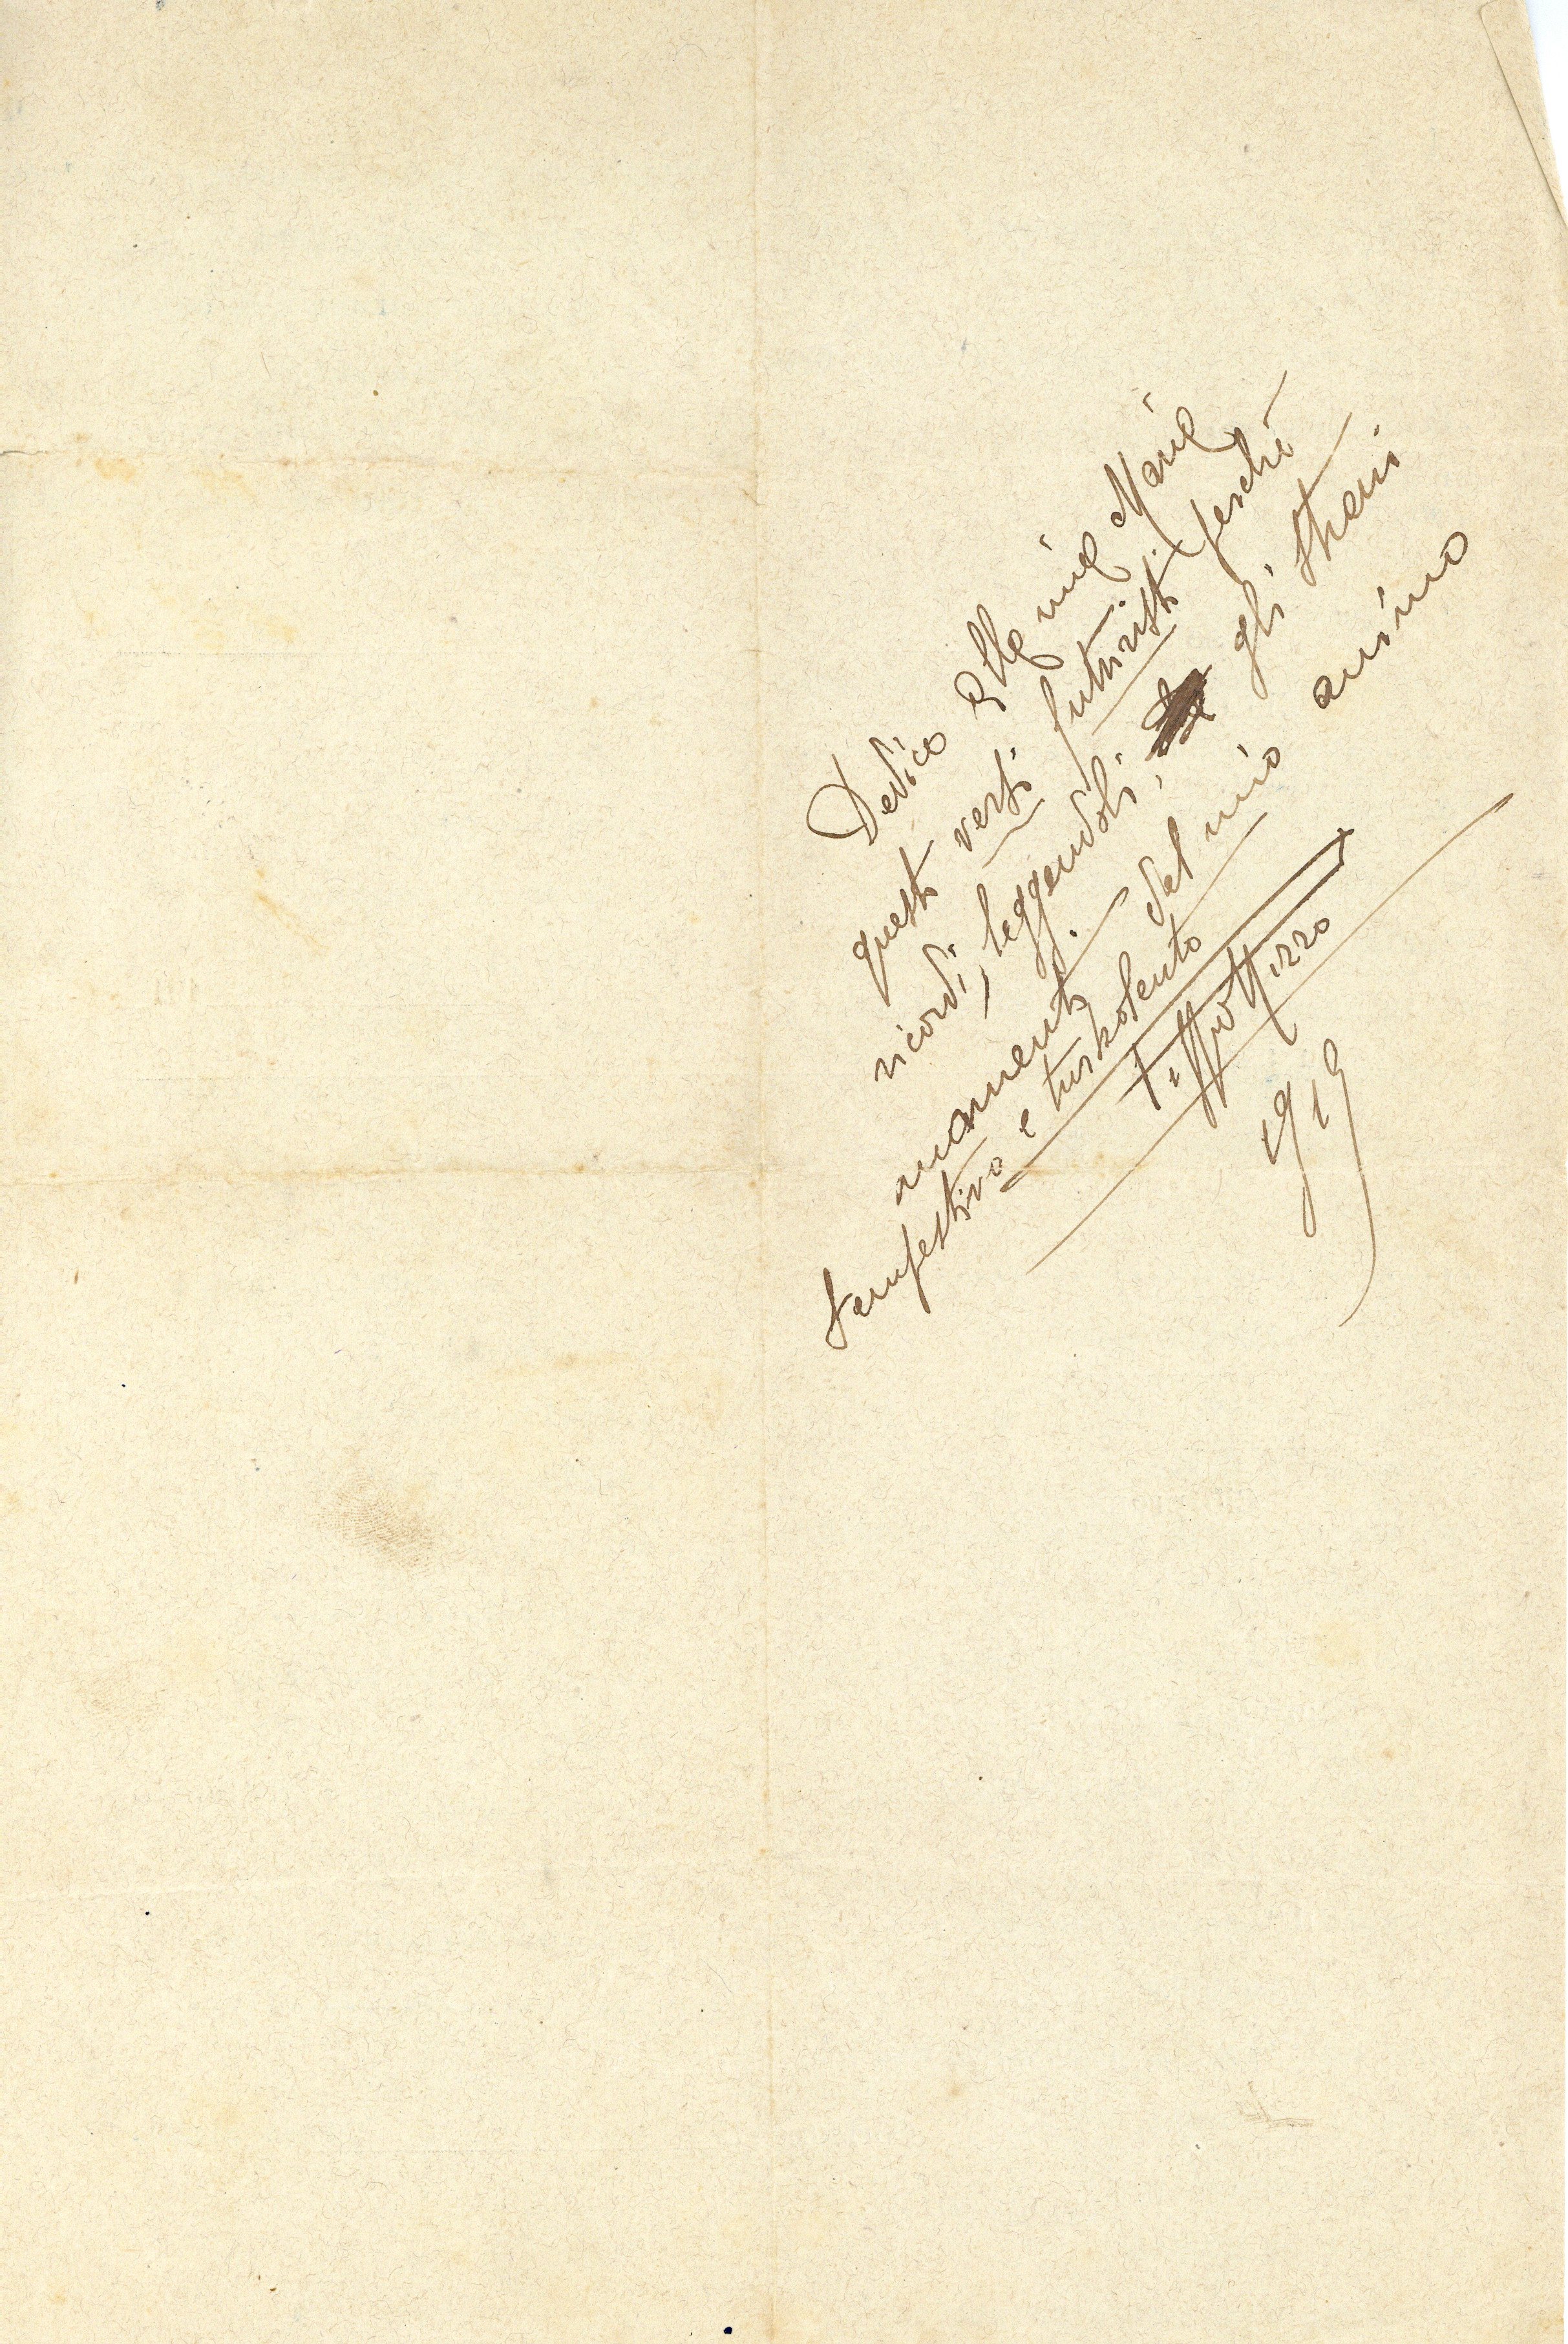 Dedico alla mia Maria
questi versi futuristi perchè
ricordi, leggendoli, gli strani
momenti del mio animo
tempestivo e turbolento
Pippo Rizzo
1919